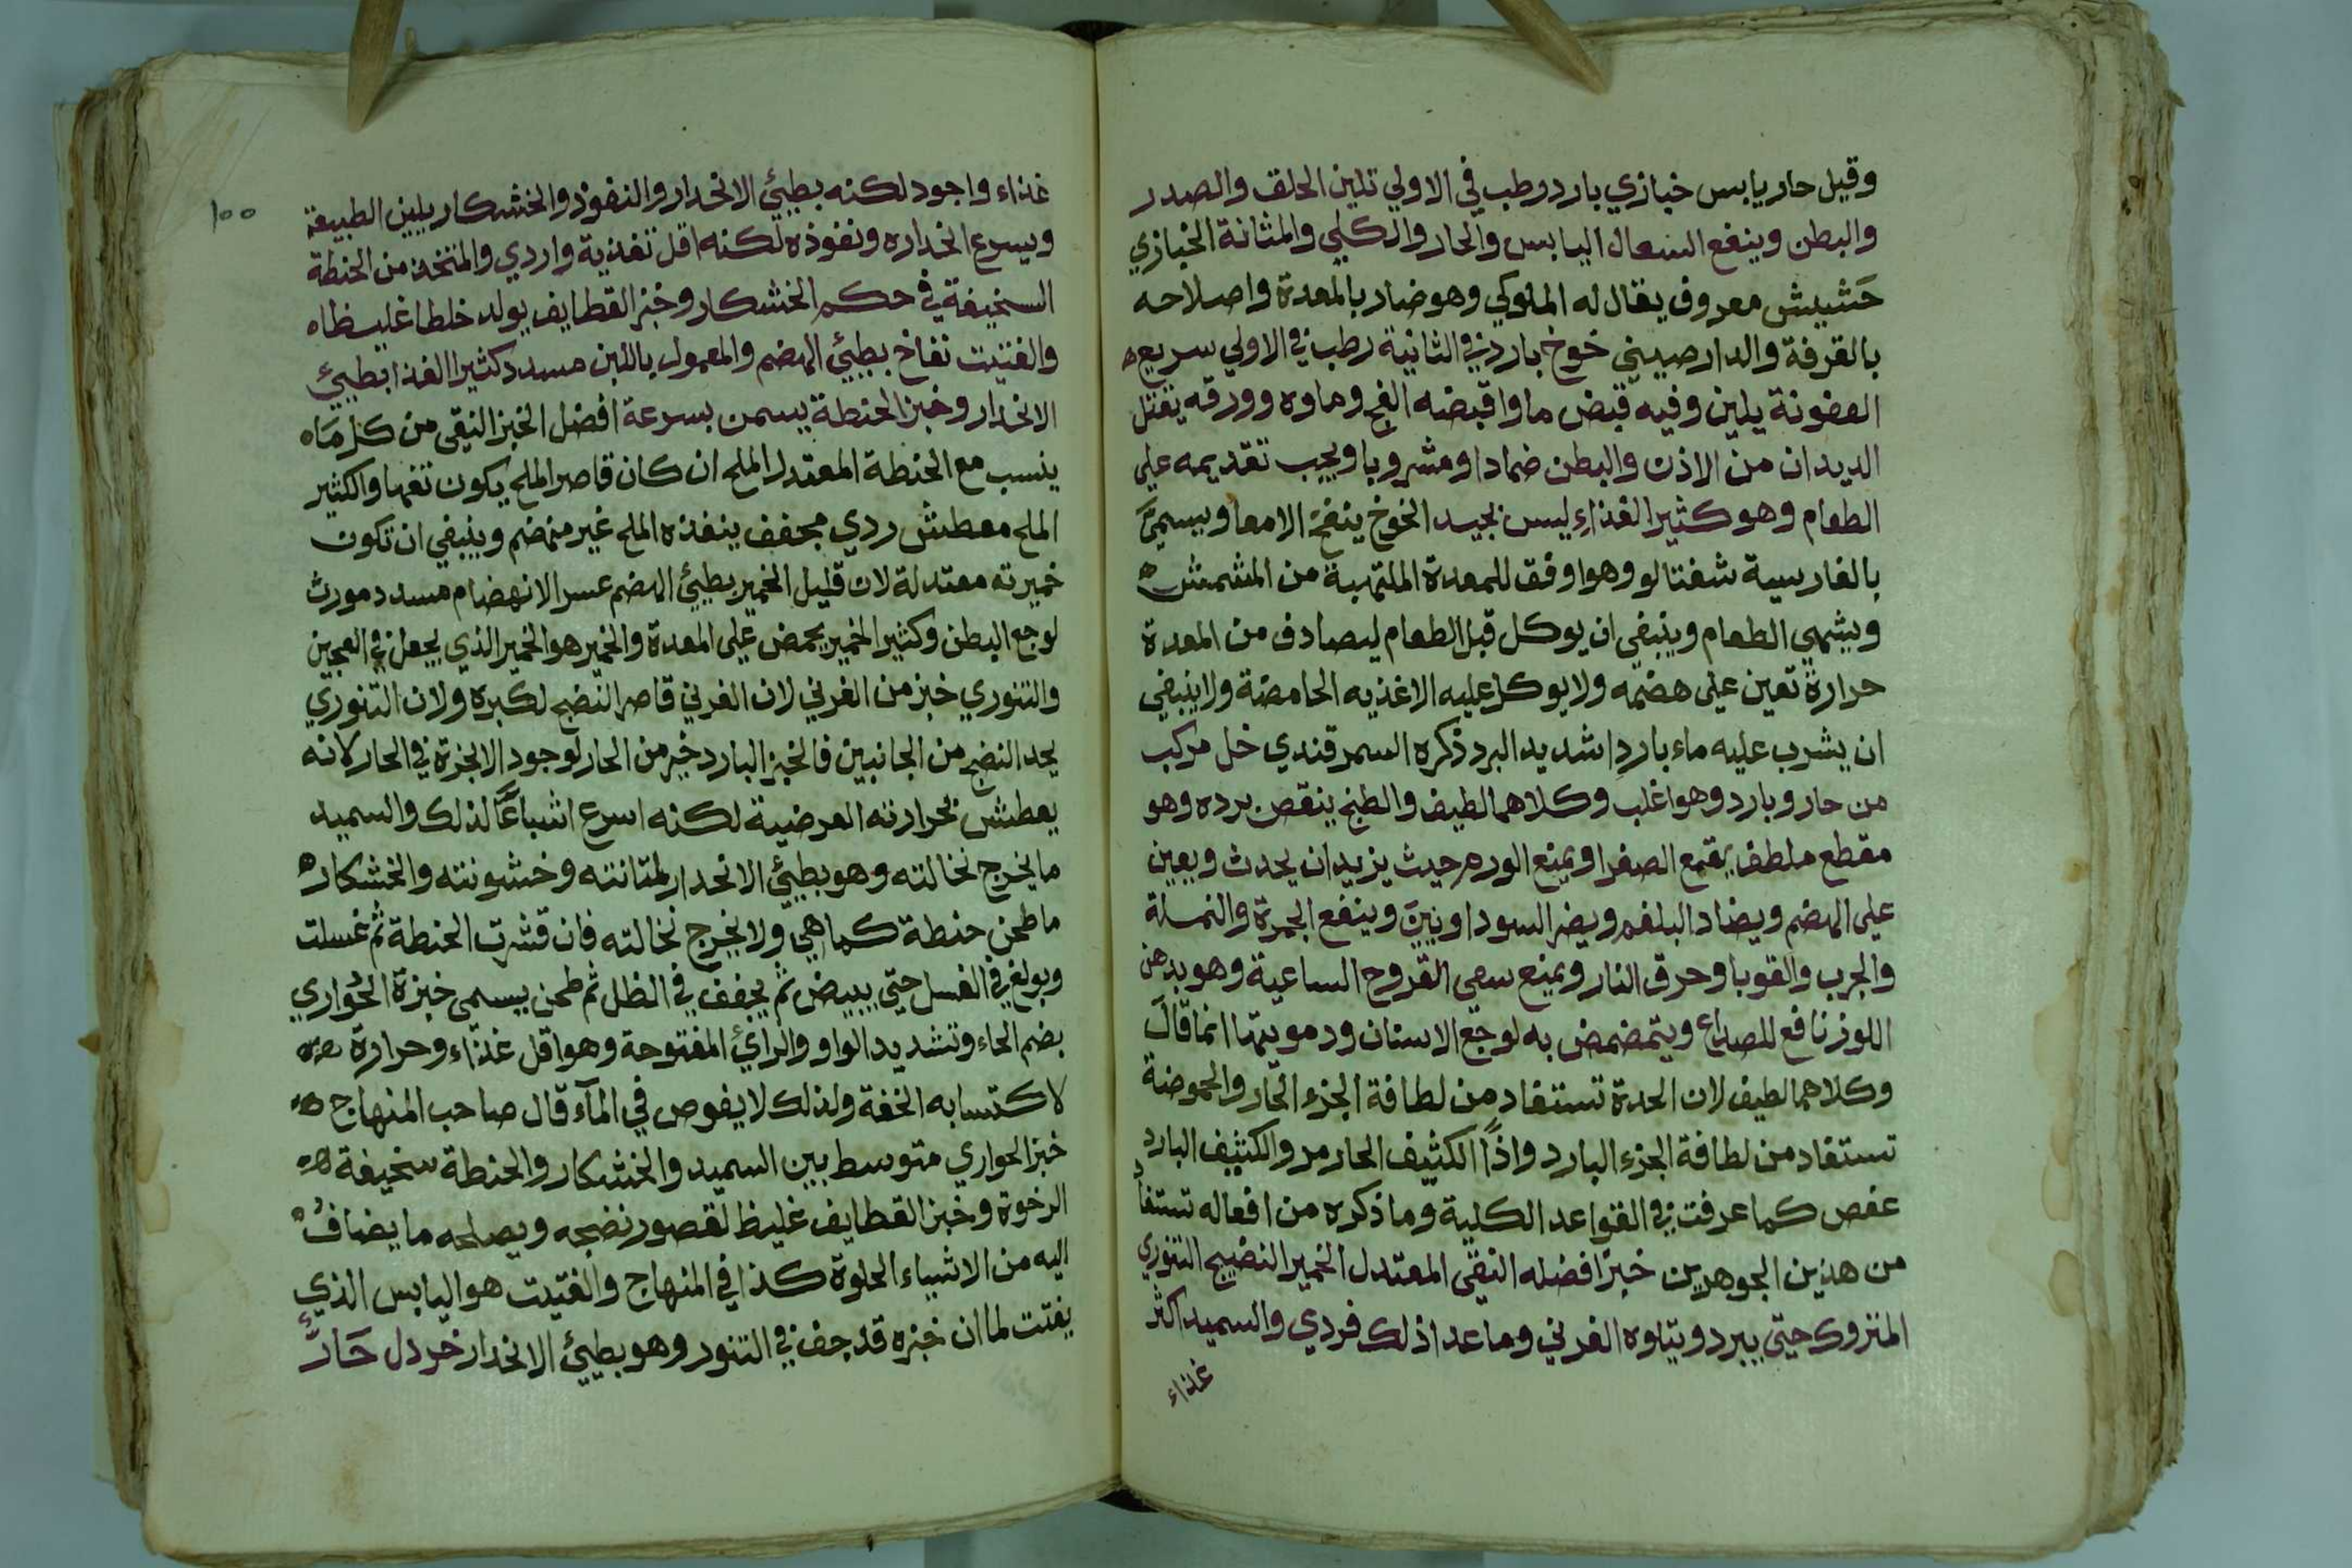 وقيل حار يابس خبازي بارد رطب في الاولي تلين الحلق والصدر
والبطن وينفع السعال اليابس والحار والكلي والمثانة الخبازي
حَشيش معروف يقال له الملوكي وهو ضار بالمعدة واصلاحه
بالقرفة والدارصيني خوخ بارد في الثانية رطب في الاولي سريع
العفونة يلين وفيه قبض ما واقبضه الفج وماوه وورقه يقتل
الديدان من الاذن والبطن ضمادا ومشروبا ويجب تقديمه علي
الطعام وهو كثير الغذاء ليس بجيد الخوخ ينفخ الامعا ويسميَّ
بالفارسية شفتالو وهو اوفق للمعدة الملتهبة من المشمش
ويشهي الطعام وينبغي ان يوكل قبل الطعام ليصادف من المعدة
حرارة تعين علي هضمه ولا يوكل عليه الاغذيه الحامضة ولا ينبغي
ان يشرب عليه ماء بارد اشديد البرد ذكره السمرقندي خل مركب
من حار وبارد وهو اغلب وكلاهما لطيف والطبخ ينقص برده وهو
مقطع ملطف يقمع الصفرا ويمنع الورم حيث يزيد ان يحدث ويعين
علي الهضم ويضاد البلغم ويضر السوداويين وينفع الجمرة والنملة
والجرب والقوبا وحرق النار ويمنع سعي القروح الساعية وهو بدهن
اللوز نافع للصداع ويتمضمض به لوجع الاسنان ودمويتها انما قالَ
وكلاهما لطيف لان الحدة تستفاد من لطافة الجزء الحار والحموضة
تستفاد من لطافة الجزء البارد واذًا الكثيف الحار مر والكثيف البارد
عفص كما عرفت في القواعد الكلية وما ذكره من افعاله تستفاد
من هذين الجوهرين خبز افضله النقي المعتدل الخمير النضيج التنوري
المتروك حتي يبرد ويتلوه الفرني وما عدا ذلك فردي والسميد اكثر
غذاء
١٠٠
غذاء واجود لكنه بطيئ الانحدار والنفوذ والخشكار يلين الطبيعة
ويسرع انحداره ونفوذه لكنه اقل تغذية واردي والمتخذ من الحنطة
السخيفة في حكم الخشكار وخبز القطايف يولد خلطا غليظاه
والفتيت نفاخ بطيئ الهضم والمعمول باللبن مسدد كثير الغذا بطيئ
الانحدار وخبز الحنطة يسمن بسرعة افضل الخبز النقي من كل مَاه
ينسب مع الحنطة المعتدل الملح ان كان قاصر الملح يكون تفها والكثير
الملح معطش ردي مجفف ينفذه الملح غير منهضم وينبغي ان تكون
خميرته معتدلة لان قليل الخمير بطيئ الهضم عسر الانهضام مسدد مورث
لوجع البطن وكثير الخمير يحمض علي المعدة والخمير هو الخمير الذي يجعل في العجين
والتنوري خير من الفرني لان الفرني قاصر النضج لكبره ولان التنوري
يجد النضج من الجانبين فالخبز البارد خير من الحار لوجود الابخرة في الحار لانه
يعطش بحرارته العرضية لكنه اسرع اشباعًا لذلك والسميد
ما يخرج نخالته وهو بطيئ الانحدار لمتانته وخشونته والخشكاره
ما طحن حنطة كما هي ولا يخرج نخالته فان قشرت الحنطة ثم غسلت
وبولغ في الغسل حتي يبيض ثم يجفف في الظل ثم طحن يسمي خبزة الحُواري
بضم الحاء وتشديد الواو والرائ المفتوحة وهو اقل غذاء وحرارة
لاكتسابه الخفة ولذلك لا يغوص في المآء قال صاحب المنهاج
خبز الحواري متوسط بين السميد والخشكار والحنطة سخيفة
الرخوة وخبز القطايف غليظ لقصور نضجه ويصلحه ما يضافُ
اليه من الاشياء الحلوة كذا في المنهاج والفتيت هو اليابس الذي
يفتت لما ان خبزه قد جف في التنور وهو بطيئ الانحدار خردل حَارٌّ